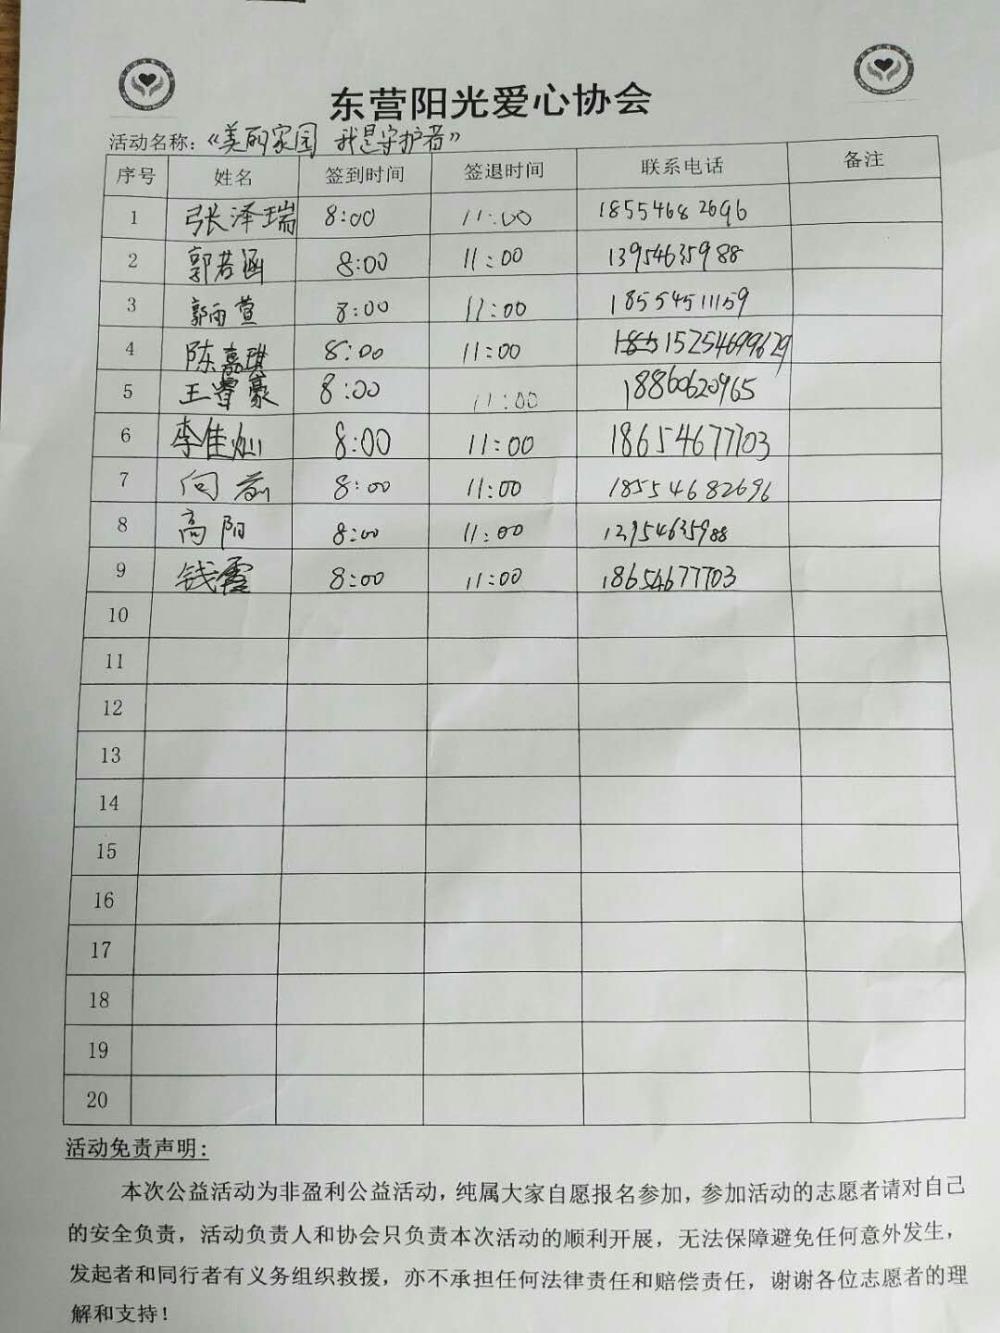 东营阳光爱心协会
活动名称：《美丽家园 我是守护者》
序号 姓名 签到时间 签退时间 联系电话 备注
1 张泽瑞 8:00 11:00 18554682696
2 郭若涵 8:00 11:00 13954635988
3 郭雨萱 8:00 11:00 18554511159
4 陈嘉琪 8:00 11:00 15254699629
5 王睿豪 8:00 11:00 18860620965
6 李佳灿 8:00 11:00 18654677703
7 向前 8:00 11:00 18554682696
8 高阳 8:00 11:00 13954635988
9 钱霞 8:00 11:00 18654677703
10
11
12
13
14
15
16
17
18
19
20
活动免责声明：
本次公益活动为非盈利公益活动，纯属大家自愿报名参加，参加活动的志愿者请对自己
的安全负责，活动负责人和协会只负责本次活动的顺利开展，无法保障避免任何意外发生，
发起者和同行者有义务组织救援，亦不承担任何法律责任和赔偿责任，谢谢各位志愿者的理
解和支持！